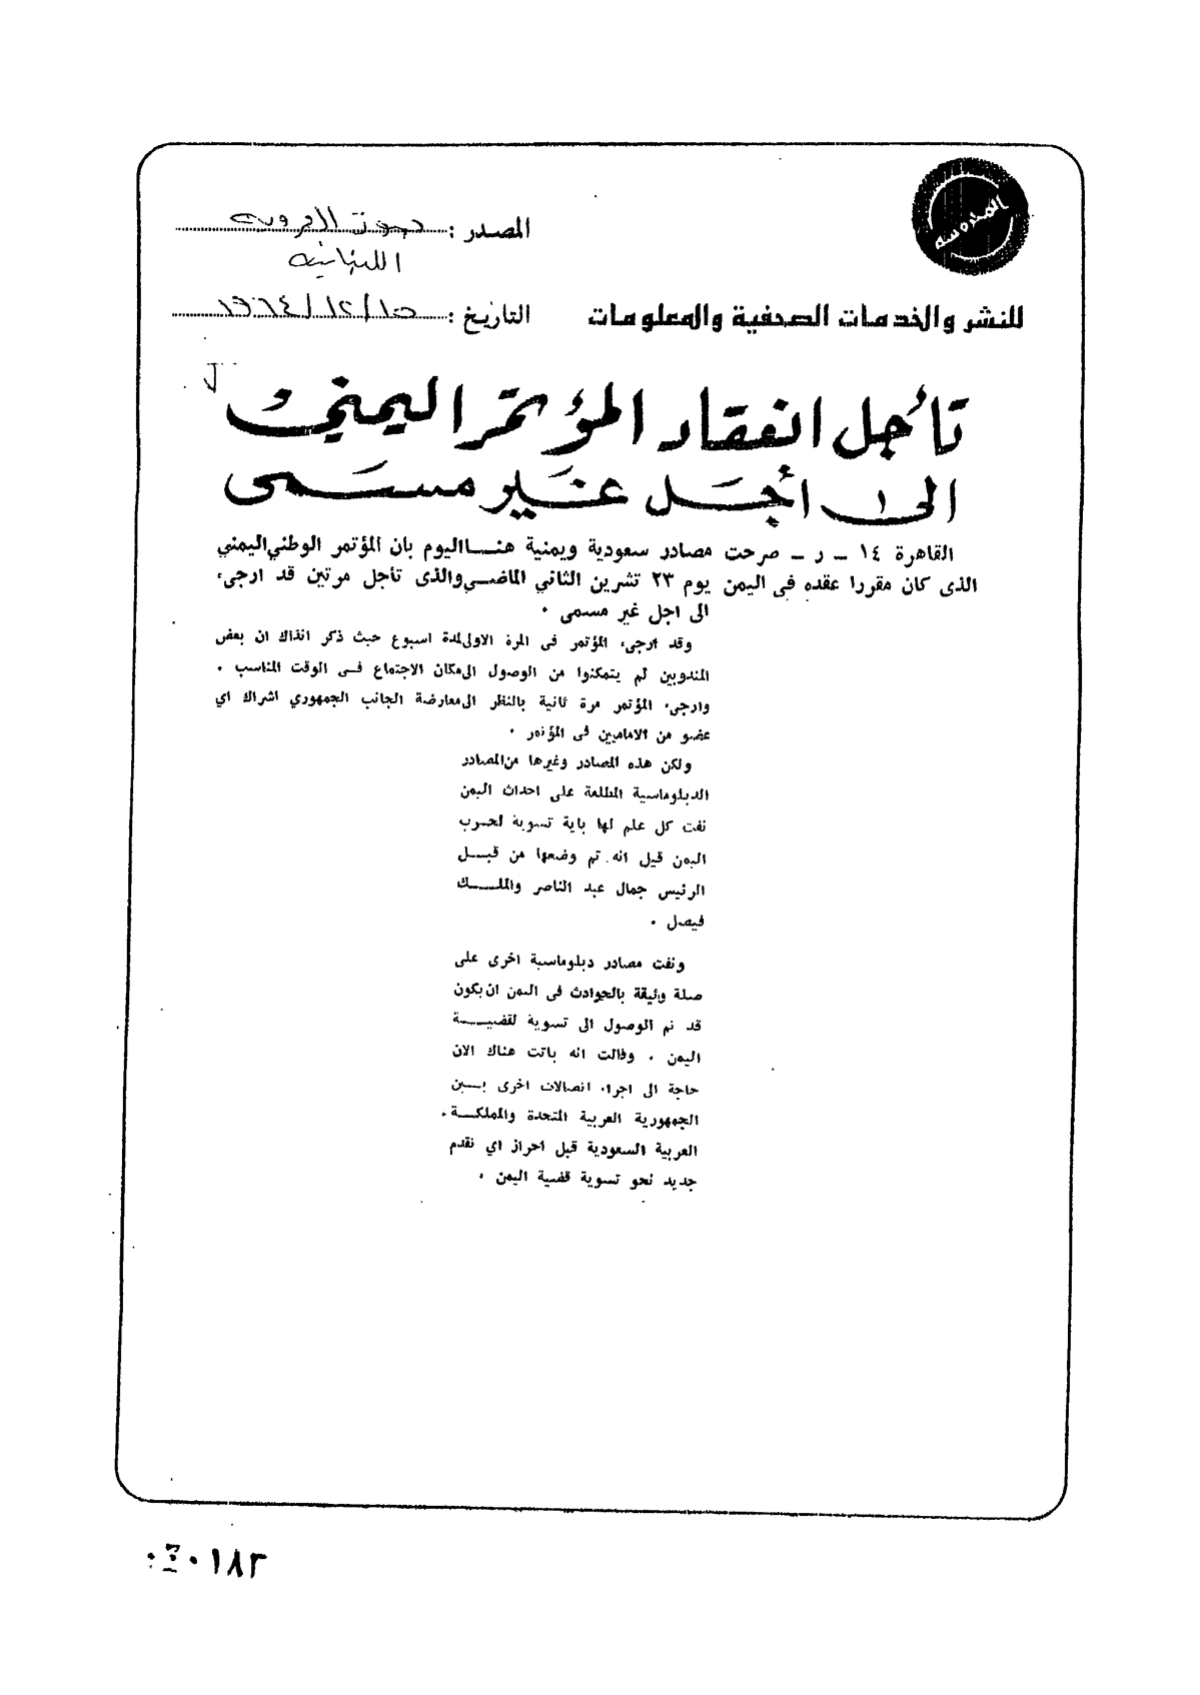 المحروسه
المصدر : صوت العروبه
اللبنانيه
للنشر والخدمات الصحفية والمعلومات
التاريخ : ١٥/١٢/١٩٦٤
تأجل انعقاد المؤتمر اليمني
الى أجل غير مسمى
القاهرة ١٤ ـ ر ـ صرحت مصادر سعودية ويمنية هنا اليوم بان المؤتمر الوطني اليمني
الذى كان مقررا عقده فى اليمن يوم ٢٣ تشرين الثاني الماضي والذى تأجل مرتين قد ارجىء
الى اجل غير مسمى .
وقد ارجىء المؤتمر فى المرة الاولى لمدة اسبوع حيث ذكر انذاك ان بعض
المندوبين لم يتمكنوا من الوصول الى مكان الاجتماع فى الوقت المناسب .
وارجىء المؤتمر مرة ثانية بالنظر الى معارضة الجانب الجمهوري اشراك اي
عضو من الاماميين فى المؤتمر .
ولكن هذه المصادر وغيرها من المصادر
الدبلوماسية المطلعة على احداث اليمن
نفت كل علم لها باية تسوية لحرب
اليمن قيل انه تم وضعها من قبل
الرئيس جمال عبد الناصر والملك
فيصل .
ونفت مصادر دبلوماسية اخرى على
صلة وثيقة بالحوادث فى اليمن ان يكون
قد تم الوصول الى تسوية لقضية
اليمن . وقالت انه باتت هناك الان
حاجة الى اجراء اتصالات اخرى بين
الجمهورية العربية المتحدة والمملكة
العربية السعودية قبل احراز اي تقدم
جديد نحو تسوية قضية اليمن .